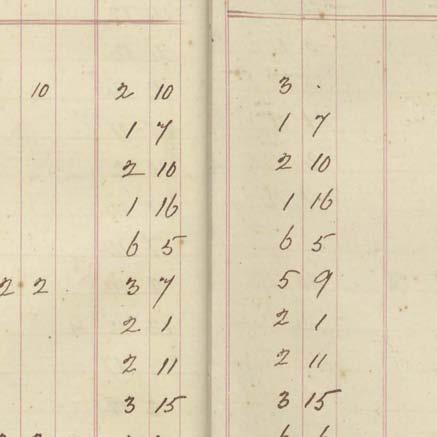 10 2 10 3 .
1 7 1 7
2 10 2 10
1 16 1 16
6 5 6 5
2 2 3 7 5 9
2 1 2 1
2 11 2 11
3 15 3 15